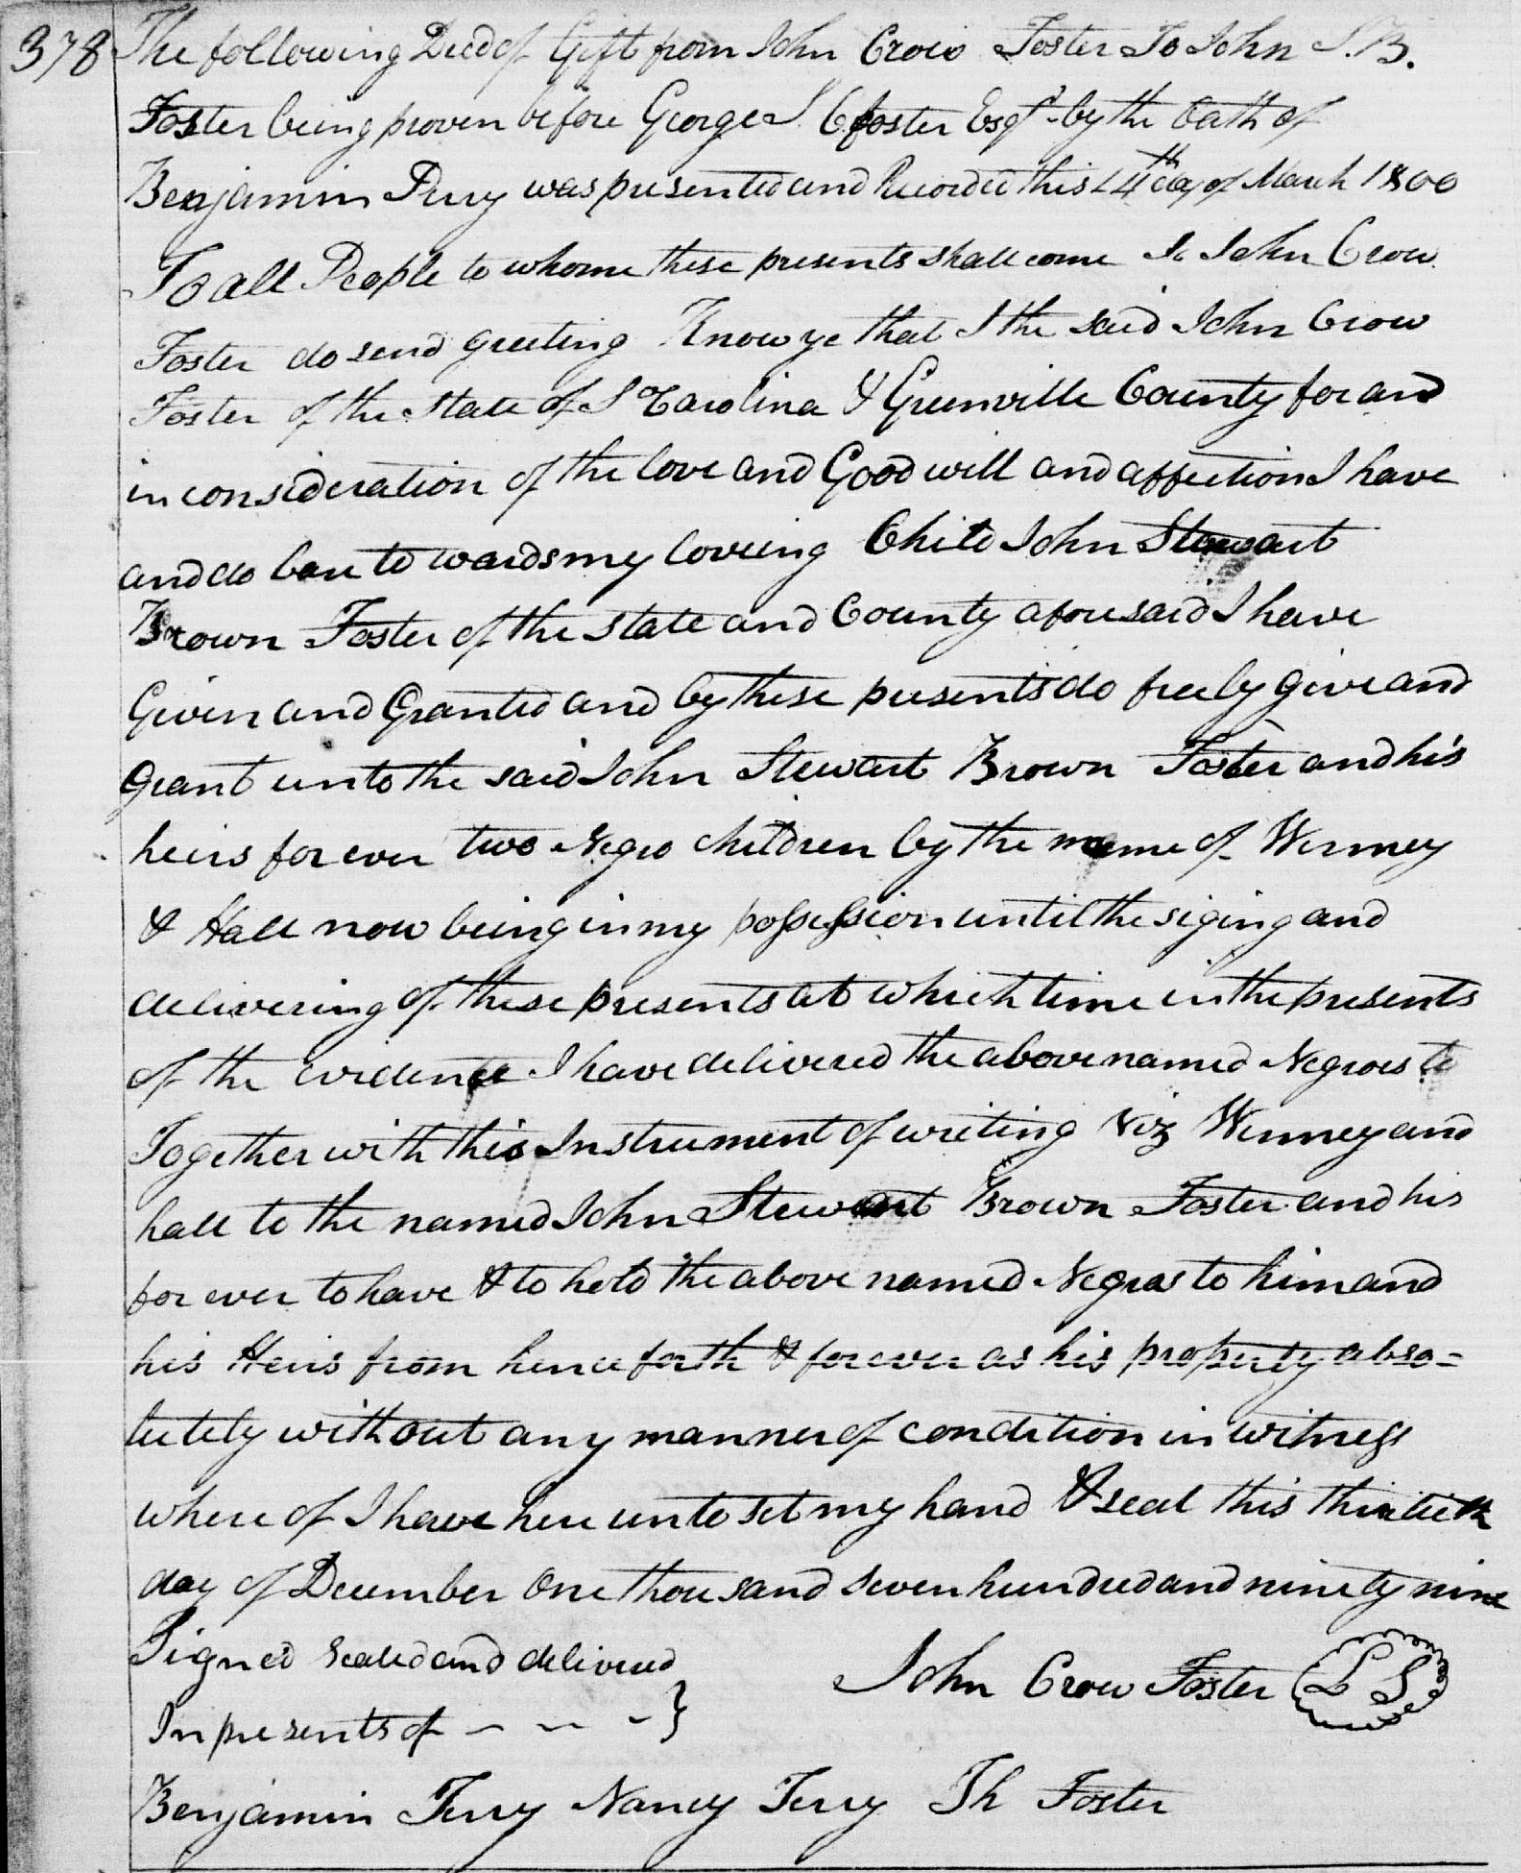 378 The following Deed of Gift from John Crow Foster To John S. B.
Foster being proven before George S Foster Esqr by the Oath of
Benjamin Perry was presented and Recorded this 14th day of March 1800
To all People to whome these presents shall come I John Crow
Foster do send greeting Know ye that I the said John Crow
Foster of the State of S Carolina & Greenville County for and
in consideration of the love and Good will and affection I have
and do bear to wards my loveing Child John Stewart
Brown Foster of the state and County aforesaid I have
Given and Granted and by these presents do freely give and
grant unto the said John Stewart Brown Foster and his
heirs for ever two Negro children by the name of Winney
& Hall now being in my possession until the siging and
delivering of these presents at which time in the presents
of the evidence I have delivered the above named Negroes to
Together with this Instrument of writing Viz Winney and
hall to the named John Stewart Brown Foster and his
for ever to have & to hold the above named Negros to him and
his Heirs from hence forth & forever as his property abso=
lutely without any manner of condition in witness
where of I have here unto set my hand & seal this thirtieth
day of December One thousand seven hundred and ninety nine
Signed Sealed and delivered
In presents of - - - }
John Crow Foster L S
Benjamin Terry Nancy Terry Th Foster